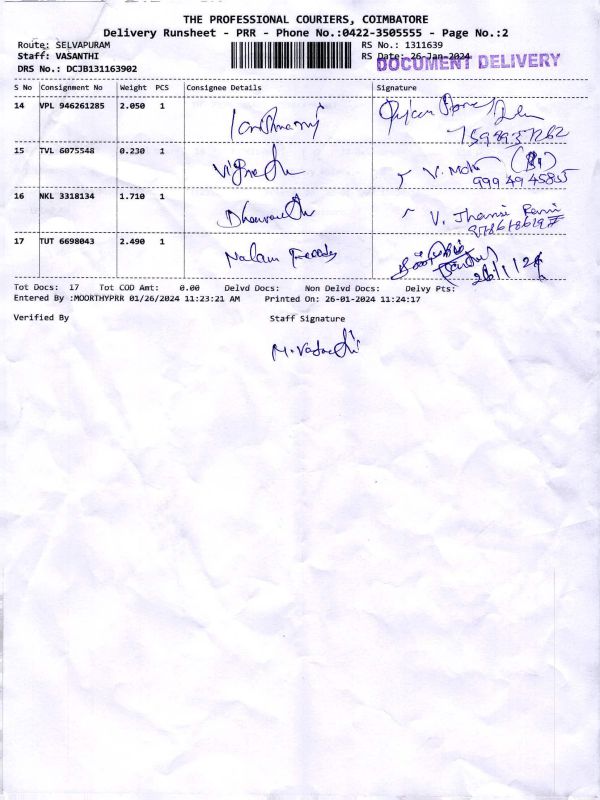 THE PROFESSIONAL COURIERS, COIMBATORE
Delivery Runsheet - PRR - Phone No.:0422-3505555 - Page No.:2
Route: SELVAPURAM RS No.: 1311639
Staff: VASANTHI RS Date: 26-Jan-2024
DOCUMENT DELIVERY
DRS No.: DCJB131163902
S No Consignment No Weight PCS Consignee Details Signature
14 VPL 946261285 2.050 1
15 TVL 6075548 0.230 1 V. 
99949 45835
16 NKL 3318134 1.710 1 V. Jhansi Rani
17 TUT 6698043 2.490 1 Nalam
26/1/24
Tot Docs: 17 Tot COD Amt: 0.00 Delvd Docs: Non Delvd Docs: Delvy Pts:
Entered By :MOORTHYPRR 01/26/2024 11:23:21 AM Printed On: 26-01-2024 11:24:17
Verified By Staff Signature